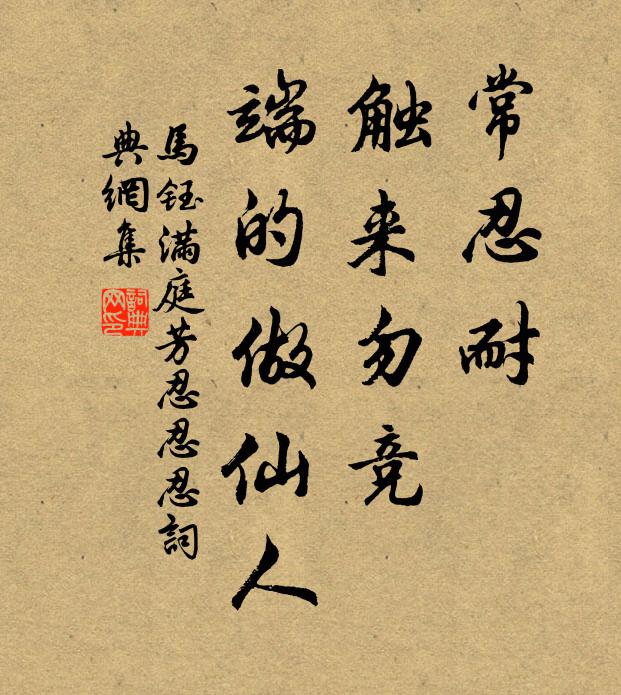 常忍耐
触来勿竞
端的做仙人
馬鈺满庭芳忍忍忍詞
典網集
詞典
网印